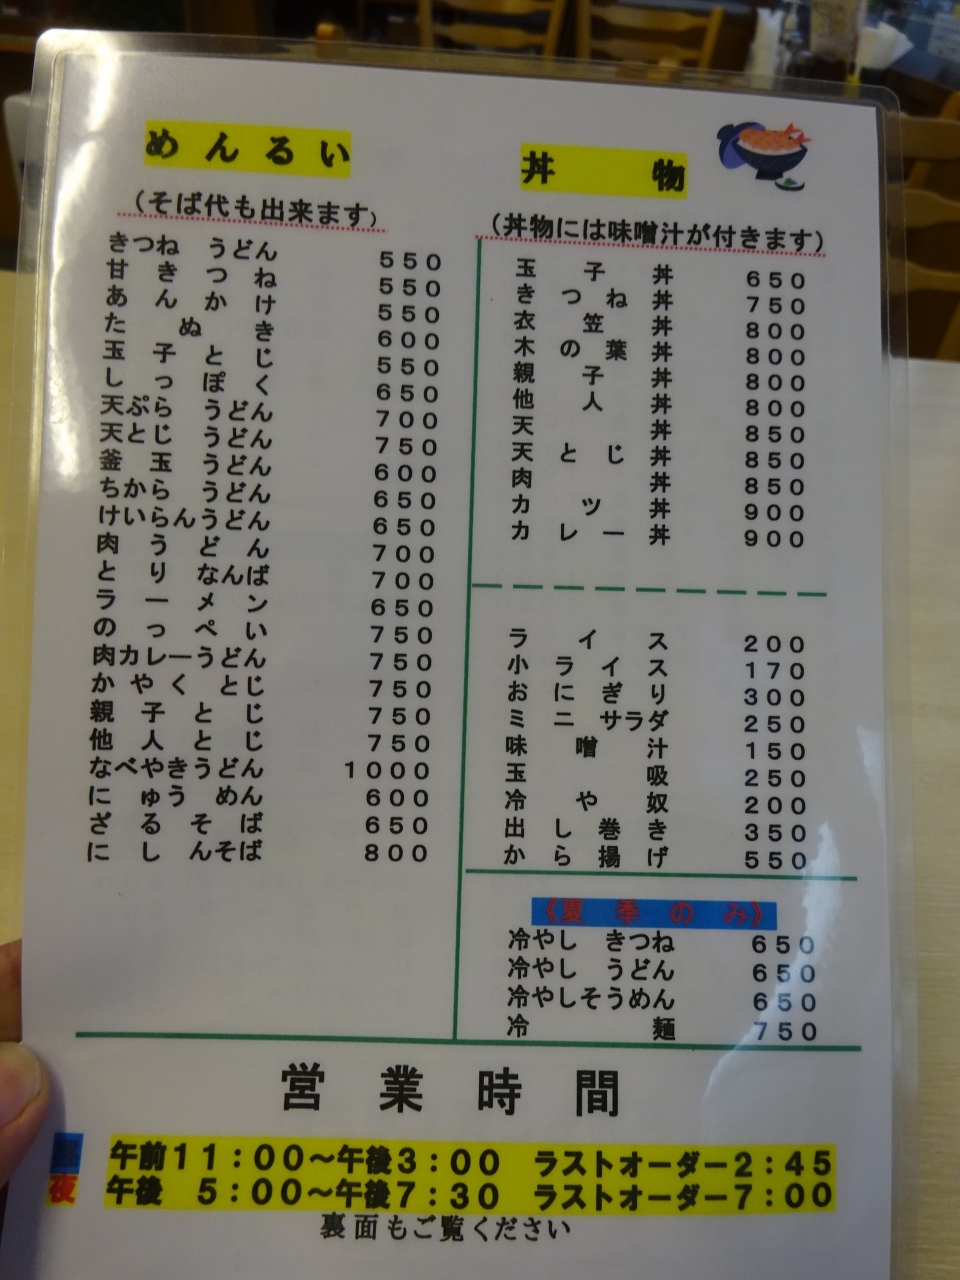 めんるい
(そば代も出来ます)
きつね うどん 550
甘きつね 550
あんかけ 550
たぬき 600
玉子とじ 550
しっぽく 650
天ぷら うどん 700
天とじ うどん 750
釜玉 うどん 600
ちから うどん 650
けいらんうどん 650
肉うどん 700
とりなんば 700
ラーメン 650
のっぺい 750
肉カレーうどん 750
かやくとじ 750
親子とじ 750
他人とじ 750
なべやきうどん 1000
にゅうめん 600
ざるそば 650
にしんそば 800
丼物
(丼物には味噌汁が付きます)
玉子丼 650
きつね丼 750
衣笠丼 800
木の葉丼 800
親子丼 800
他人丼 800
天丼 850
天とじ丼 850
肉丼 850
カツ丼 900
カレー丼 900
ライス 200
小ライス 170
おにぎり 300
ミニサラダ 250
味噌汁 150
玉吸 250
冷や奴 200
出し巻き 350
から揚げ 550
《夏季のみ》
冷やし きつね 650
冷やし うどん 650
冷やしそうめん 650
冷麺 750
営業時間
昼 午前11:00~午後3:00 ラストオーダー2:45
夜 午後 5:00~午後7:30 ラストオーダー7:00
裏面もご覧ください